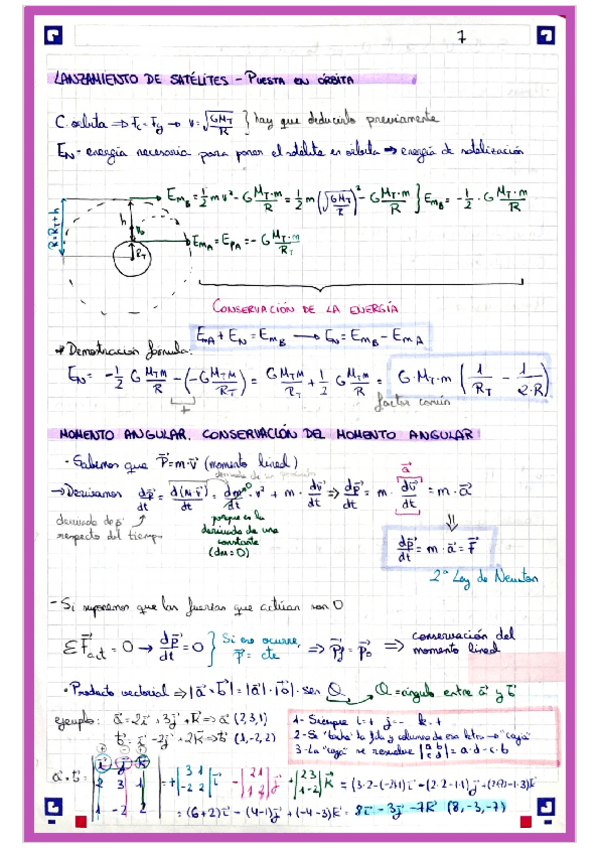 7
LANZAMIENTO DE SATÉLITES - PUESTA EN ÓRBITA
C. orbita ⇒ Fc = Fg → v = √(GM_T/R) } hay que deducirlo previamente
E_N - energía necesaria para poner el satélite en órbita ⇒ energía de satelización
R = R_T + h
h
R_T
E_mB = 1/2 m v² - G M_T·m/R = 1/2 m (√(GM_T/R))² - G M_T·m/R } E_mB = - 1/2 · G M_T·m/R
E_mA = E_pA = - G M_T·m/R_T
CONSERVACIÓN DE LA ENERGÍA
E_mA + E_N = E_mB → E_N = E_mB - E_mA
Demostración fórmula:
E_N = - 1/2 G M_T·m/R - (- G M_T·m/R_T) = G M_T·m/R_T + 1/2 G M_T·m/R = G·M_T·m (1/R_T - 1/2·R)
+
factor común
MOMENTO ANGULAR. CONSERVACIÓN DEL MOMENTO ANGULAR
- Sabemos que p⃗ = m·v⃗ (momento lineal)
derivada de un
a⃗
→ Derivamos dp⃗/dt = d(m·v⃗)/dt = dm/dt · v⃗ + m · dv⃗/dt ⇒ dp⃗/dt = m · dv⃗/dt = m·a⃗
derivada de p⃗
respecto del tiempo
porque es la
derivada de una
constante
(dm = 0)
dp⃗/dt = m·a⃗ = F⃗
2ª Ley de Newton
- Si suponemos que las fuerzas que actúan son 0
ΣF⃗act = 0 → dp⃗/dt = 0 } Si eso ocurre,
p⃗ = cte
⇒ p⃗f = p⃗0 ⇒ conservación del
momento lineal
• Producto vectorial ⇒ |a⃗ × b⃗| = |a⃗| · |b⃗| · sen α
α = ángulo entre a⃗ y b⃗
ejemplo: a⃗ = 2i⃗ + 3j⃗ + k⃗ ⇒ a⃗ (2,3,1)
b⃗ = i⃗ - 2j⃗ + 2k⃗ ⇒ b⃗ (1,-2,2)
1- Siempre i + j - k +
2- Si "tacho" la fila y columna de esa letra → "caja"
3- La "caja" se resuelve |a b / c d| = a·d - c·b
+ - +
a⃗ × b⃗ = | i⃗ j⃗ k⃗ |
2 3 1
1 -2 2
= + |3 1 / -2 2| i⃗ - |2 1 / 1 2| j⃗ + |2 3 / 1 -2| k⃗ = (3·2-(-2)·1) i⃗ - (2·2-1·1) j⃗ + (2·(-2)-1·3) k⃗
= (6+2) i⃗ - (4-1) j⃗ + (-4-3) k⃗ = 8i⃗ - 3j⃗ - 7k⃗ (8,-3,-7)